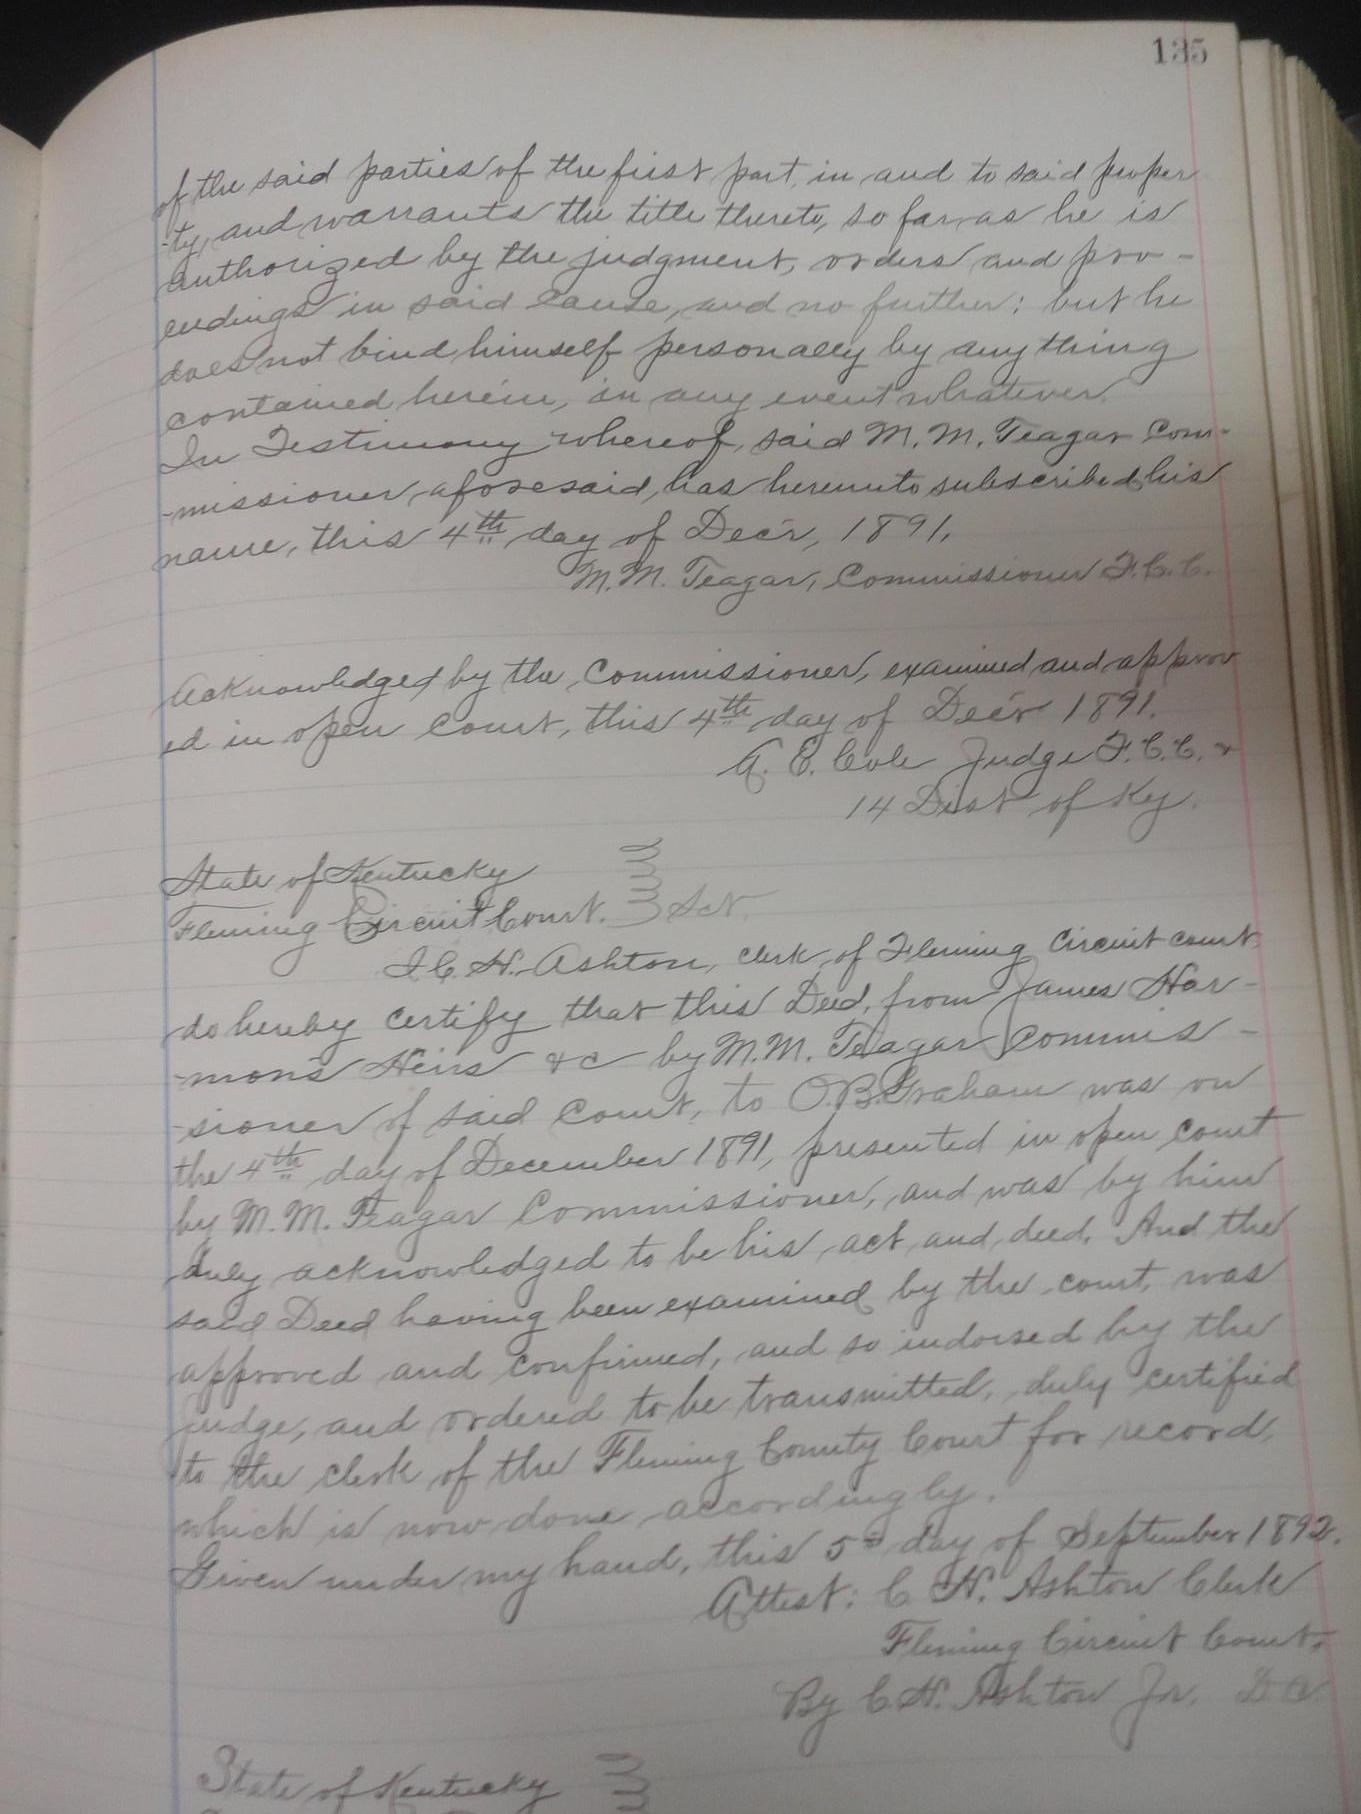 135
of the said parties of the first part, in and to said proper
-ty, and warrants the title thereto, so far as he is
authorized by the judgment, orders and pro-
ceedings in said cause, and no further; but he
does not bind himself personally by anything
contained herein, in any event whatever.
In Testimony whereof, said M. M. Teagar Com-
-missioner aforesaid, has hereunto subscribed his
name, this 4th day of Dec'r, 1891.
M. M. Teagar, Commissioner F.C.C.
Acknowledged by the Commissioner, examined and approv
ed in open court, this 4th day of Dec'r 1891.
A. E. Cole Judge F.C.C. &
14 Dist of Ky.
State of Kentucky
Fleming Circuit Court. Sct.
I C. N. Ashton, clerk of Fleming Circuit court
do hereby certify that this Deed, from James Har-
-mon's Heirs &c by M. M. Teagar Commis-
-sioner of said Court, to O. B. Graham was on
the 4th day of December 1891, presented in open court
by M. M. Teagar Commissioner, and was by him
duly acknowledged to be his act and deed. And the
said Deed having been examined by the court, was
approved and confirmed, and so indorsed by the
judge, and ordered to be transmitted, duly certified
to the clerk of the Fleming County Court for record,
which is now done accordingly.
Given under my hand, this 5th day of September 1892.
Attest: C. N. Ashton Clerk
Fleming Circuit Court.
By C. N. Ashton Jr. D C
State of Kentucky